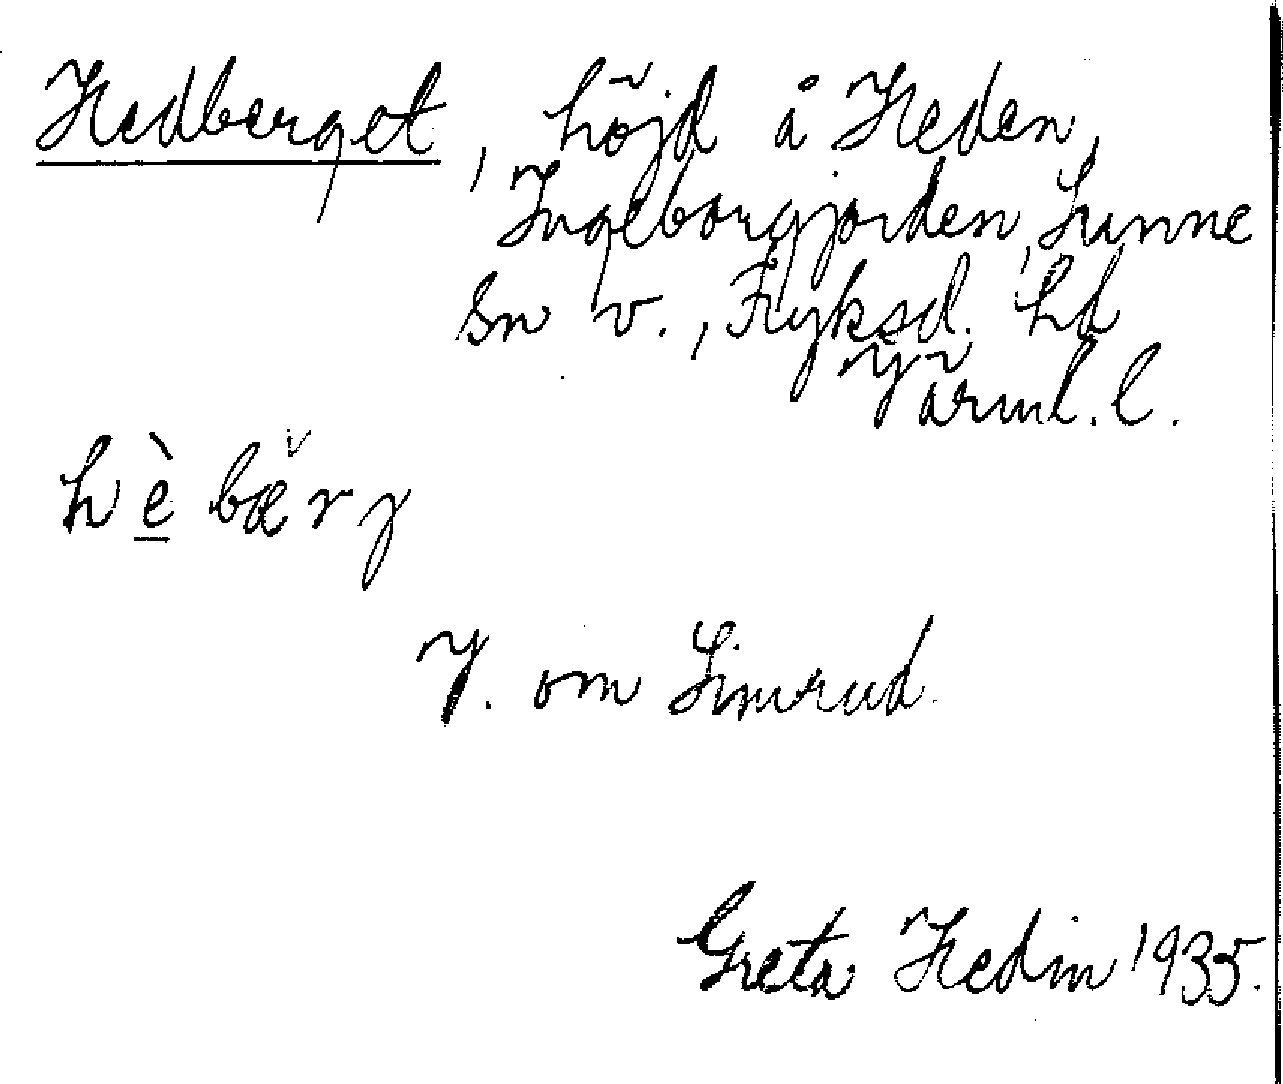 Hedberget, höjd å Heden,
Ingeborgjorden, Sunne
sn v., Fryksd. hd
Värml. l.
hè bærγ
V. om Simrud.
Greta Hedin 1935.